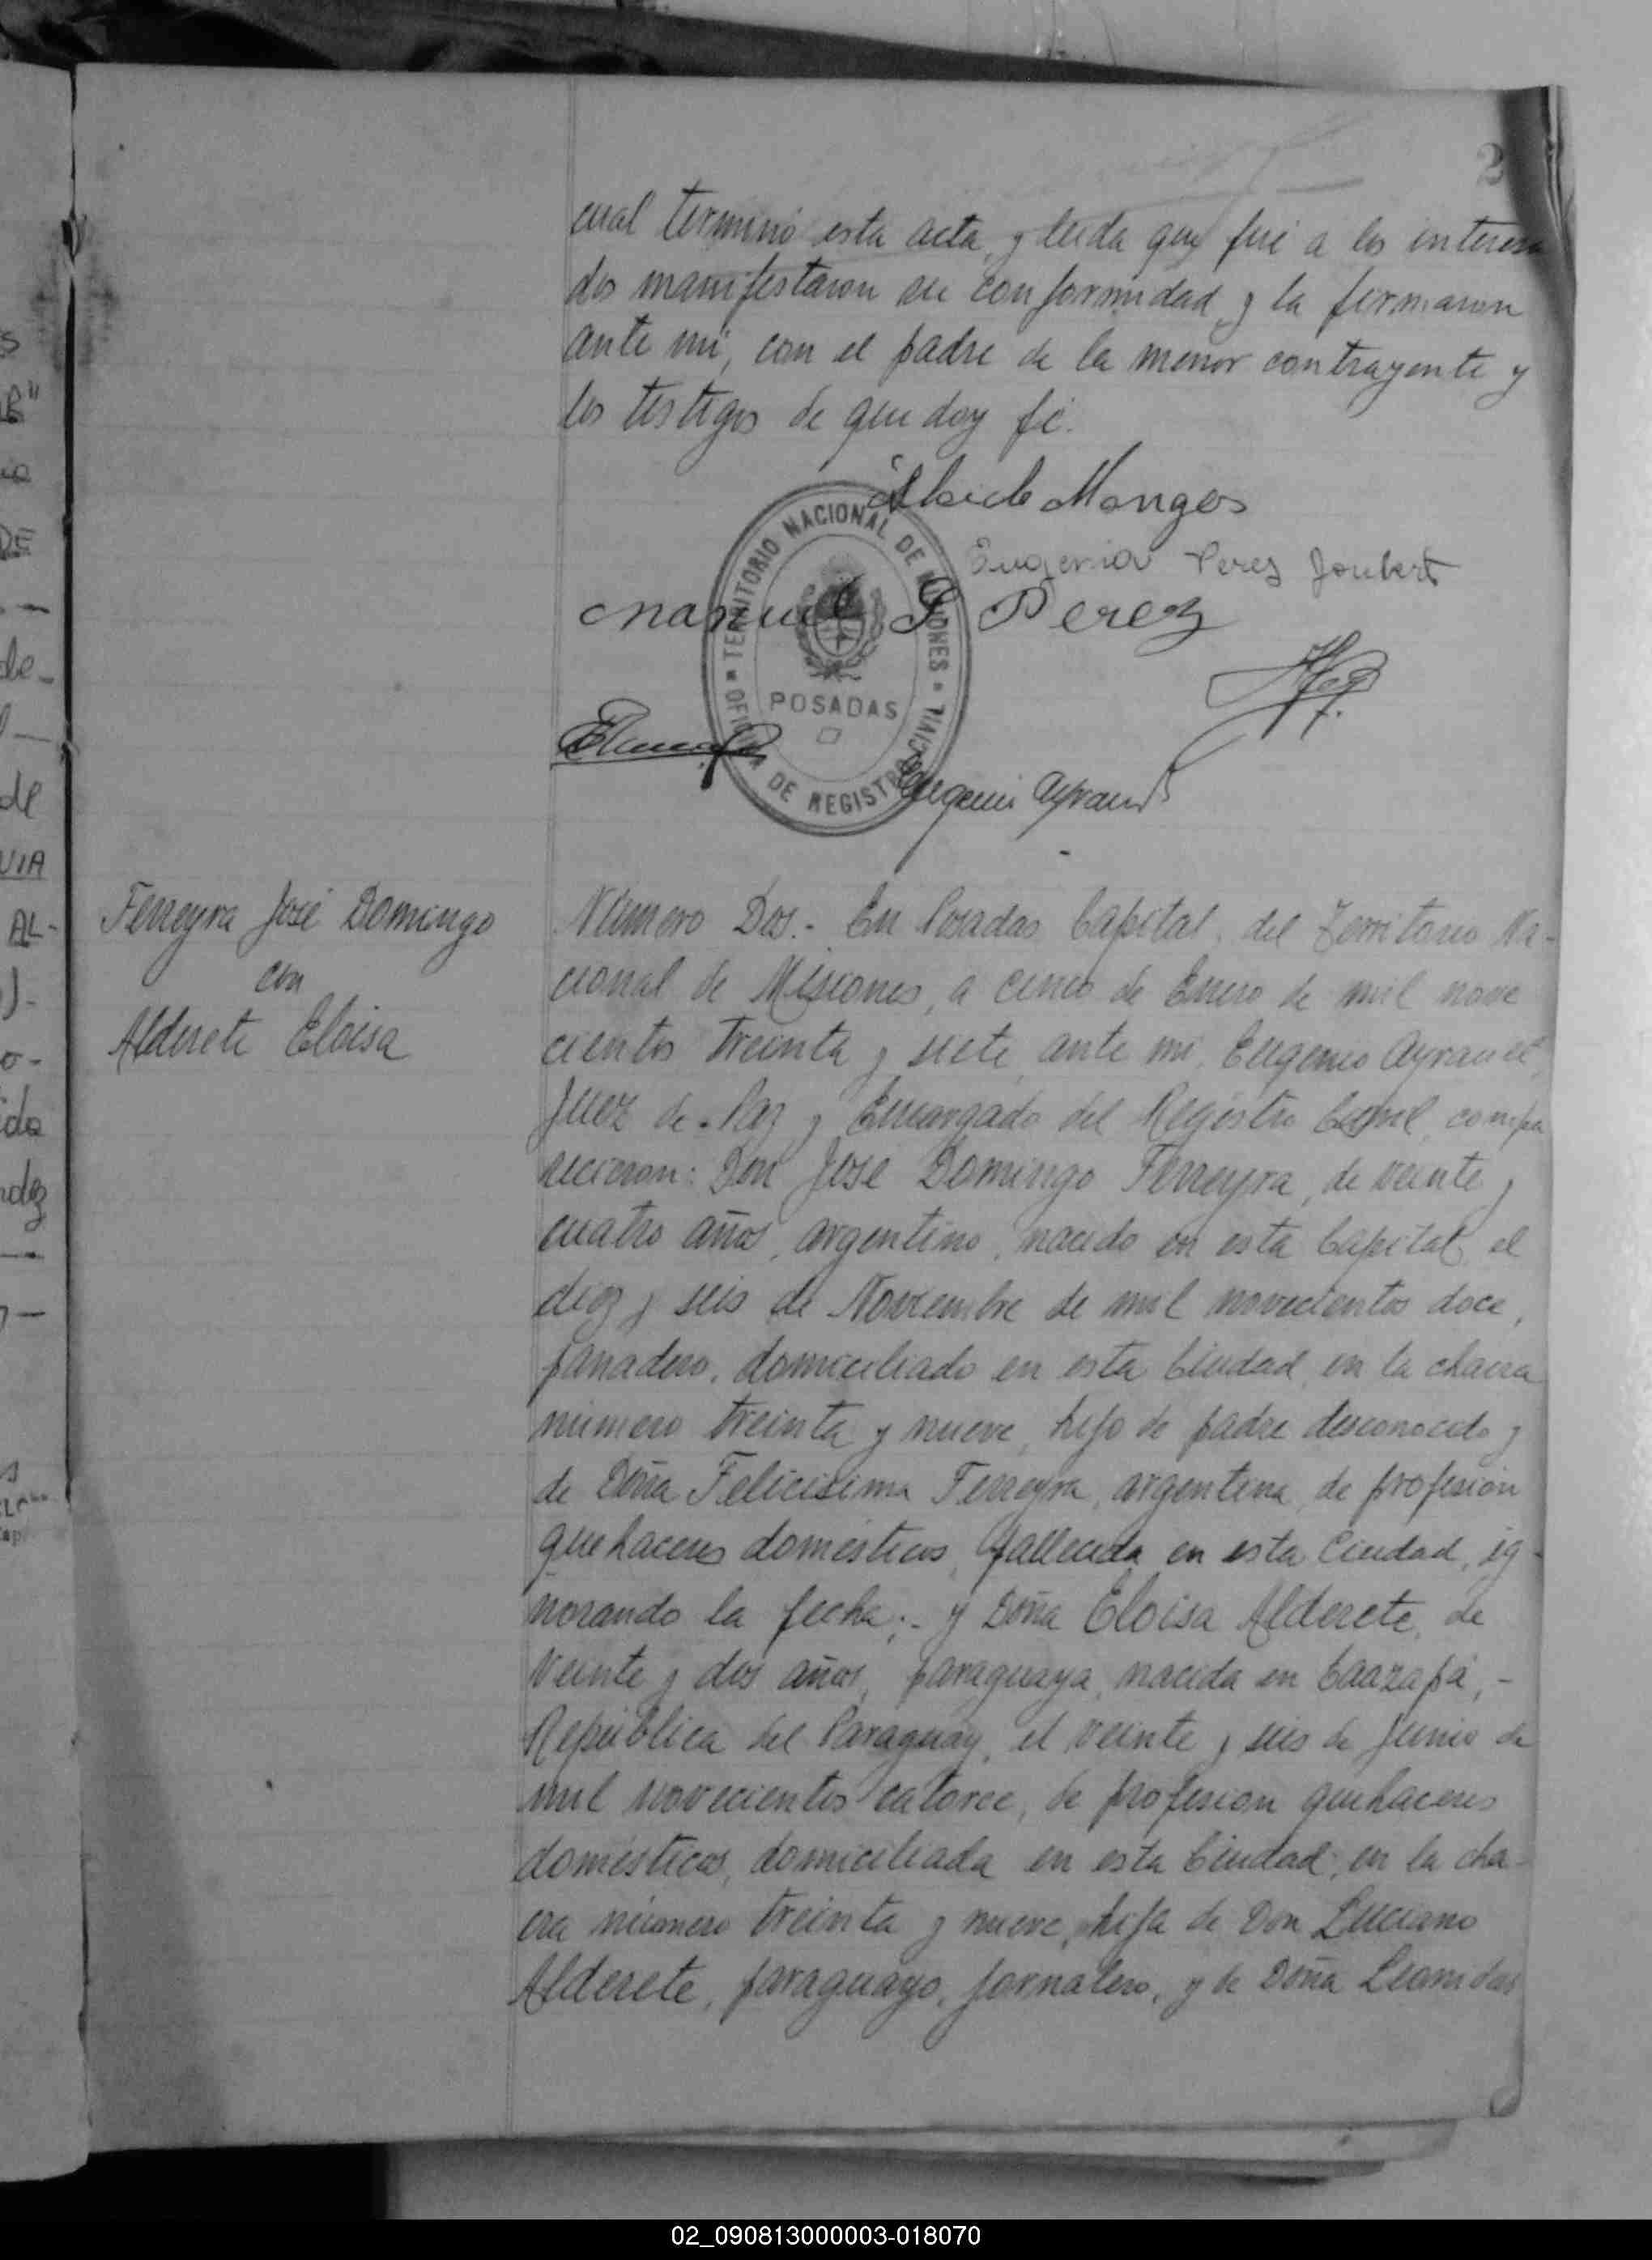 2
cual terminó esta acta, y leida que fué a los interesa
dos manifestaron su conformidad, y la firmaron
ante mi, con el padre de la menor contrayente y
los testigos de que doy fé.
Alcide Monges
Eugenia Perez Joubert
Manuel S Perez
TERRITORIO NACIONAL DE MISIONES
POSADAS
OFICINA DE REGISTRO CIVIL
Eugenio Ayraud
Ferreyra José Domingo
con
Alderete Eloisa
Número Dos.- En Posadas Capital, del Territorio Na-
cional de Misiones, a cinco de Enero de mil nove
cientos treinta y siete, ante mi, Eugenio Ayrault,
Juez de Paz y Encargado del Registro Civil, compa
recieron: Don José Domingo Ferreyra, de veinte y
cuatro años, argentino, nacido en esta Capital el
diez y seis de Noviembre de mil novecientos doce,
panadero, domiciliado en esta Ciudad, en la chacra
número treinta y nueve, hijo de padre desconocido y
de Doña Felicisima Ferreyra, argentina, de profesión
quehaceres domésticos, fallecida en esta Ciudad, ig-
norando la fecha;- y Doña Eloisa Alderete, de
veinte y dos años, paraguaya, nacida en Caazapá,-
República del Paraguay, el veinte y seis de Junio de
mil novecientos catorce, de profesión quehaceres
domésticos, domiciliada en esta Ciudad, en la cha-
cra número treinta y nueve, hija de Don Luciano
Alderete, paraguayo, jornalero, y de Doña Leonidas
02_090813000003-018070